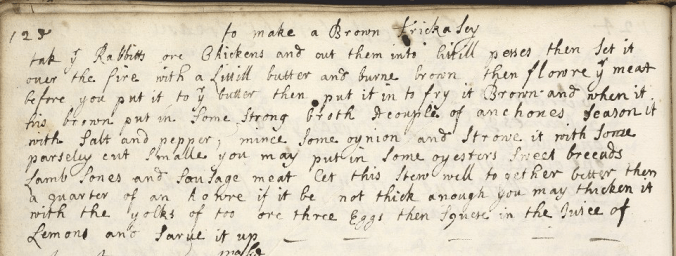 123 to make a Brown frickasey
tak yͤ Rabbitts ore Chickens and cut them into littill peses then set it
over the fire with a Littill butter and burne brown then flowre yͤ meat
before you put it to yͤ butter then put it in to fry it Brown and when it
his brown put in some strong broth A couple of anchoues season it
with salt and pepper, mince some oynion and strowe it with some
parseley cut smalle you may put in some oyesters sweet breeuds
Lamb stones and sausage meat Let this stew well to gether better then
a quarter of an howre if it be not thick anough you may thicken it
with the yolks of too ore three Eggs then squese in the Juice of
Lemons and sarue it up